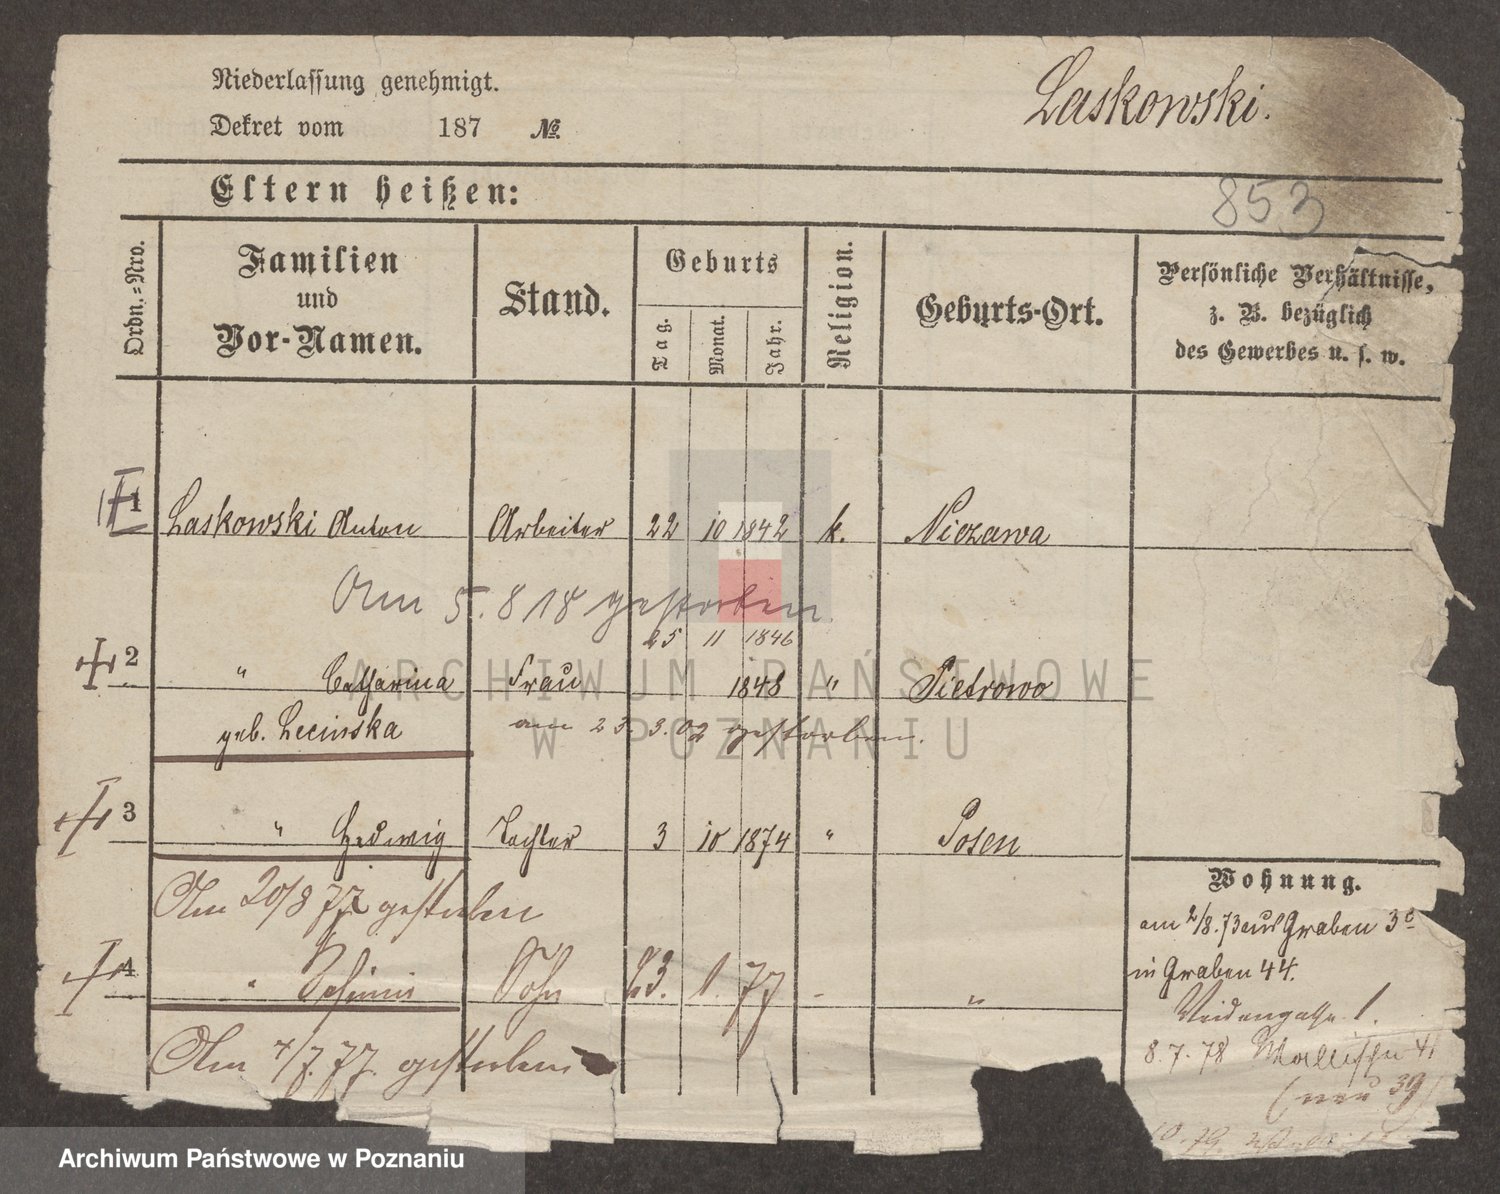 Niederlassung genehmigt.
Laskowski.
Dekret vom 187 №
Eltern heißen:
853
Ordn.-Nro.
Familien
und
Vor-Namen.
Stand.
Geburts
Tag.
Monat.
Jahr.
Religion.
Geburts-Ort.
Persönliche Verhältnisse,
z. B. bezüglich
des Gewerbes u. s. w.
1 Laskowski Anton Arbeiter 22 10 1842 k. Niezawa
Am 5. 8 18 gestorben
25 11 1846
2 " Catharina Frau 1848 " Pietrowo
geb. Lecinska am 23.3.02 gestorben.
3 " Hedwig Tochter 3 10 1874 " Posen
Am 20/8 77 gestorben
4 " Sohn 23. 1. 77 - "
Am 4/7. 77. gestorben
Wohnung.
am 2/8.73 aus Graben 3c
in Graben 44.
Weidengasse 1.
8.7.78 Wallischei 41
(neu 39)
ARCHIWUM PAŃSTWOWE
W POZNANIU
Archiwum Państwowe w Poznaniu